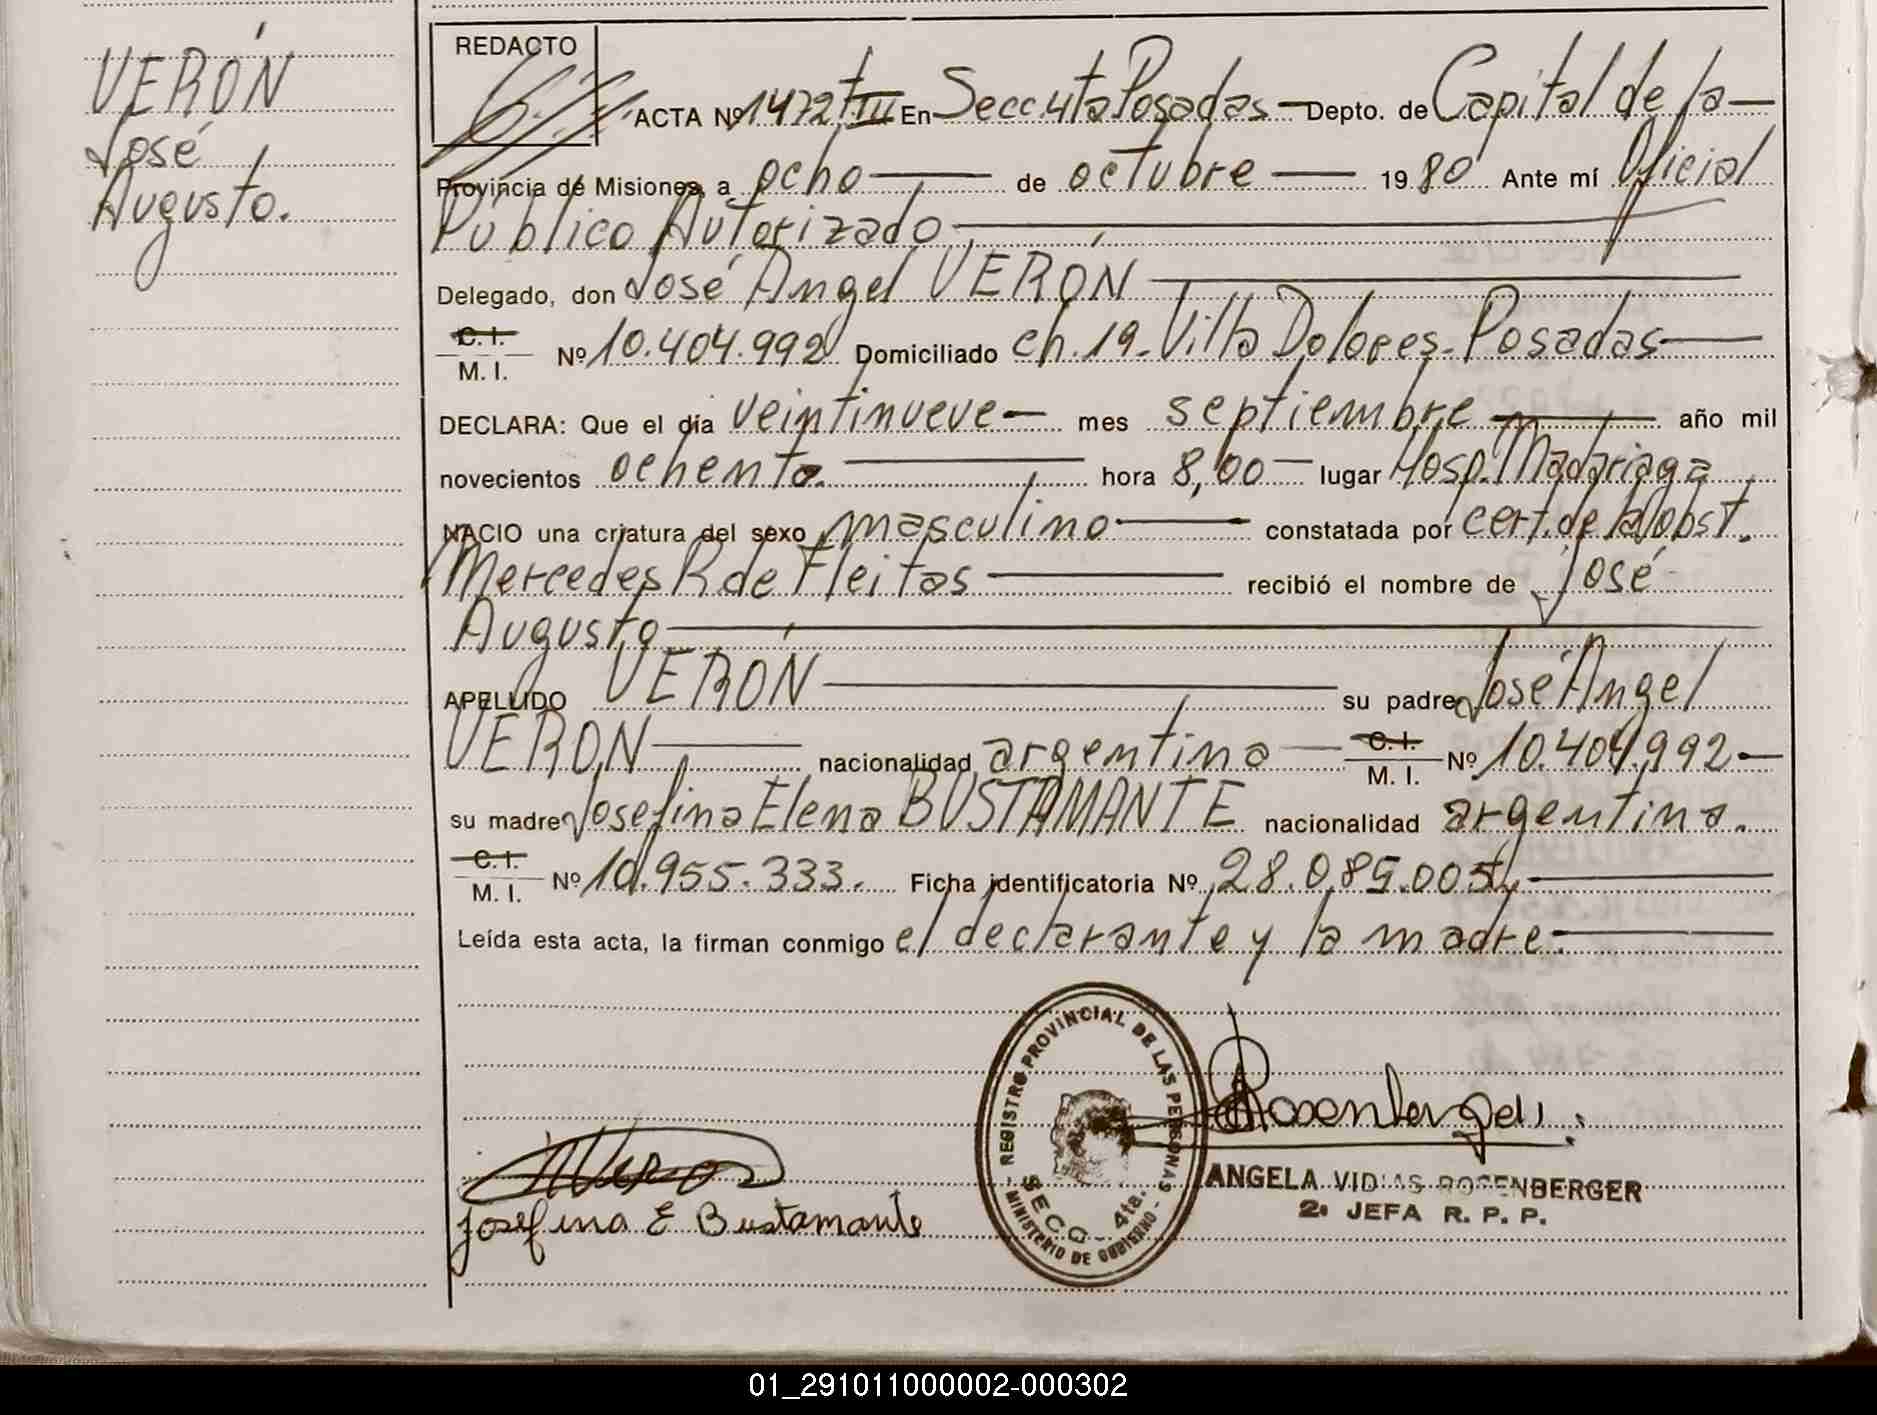 VERÓN
José
Augusto.
REDACTO
ACTA Nº 1472 tIII En Secc. 4ta Posadas — Depto. de Capital de la —
Provincia de Misiones, a ocho — de octubre — 1980 Ante mí Oficial
Público Autorizado
Delegado, don José Angel VERÓN
C. I.
M. I. Nº 10.404.992 Domiciliado ch. 19 - Villa Dolores - Posadas —
DECLARA: Que el día veintinueve — mes septiembre — año mil
novecientos ochenta. — hora 8,00 — lugar Hosp. Madariaga
NACIO una criatura del sexo masculino — constatada por cert. de la obst.
Mercedes R de Fleitas — recibió el nombre de José
Augusto
APELLIDO VERÓN — su padre José Angel
VERON — nacionalidad argentina — C. I. M. I. Nº 10.404.992 —
su madre Josefina Elena BUSTAMANTE nacionalidad argentina.
C. I.
M. I. Nº 10.955.333. Ficha identificatoria Nº 28.085.005 —
Leída esta acta, la firman conmigo el declarante y la madre. —
REGISTRO PROVINCIAL DE LAS PERSONAS
SECC. 4ta.
MINISTERIO DE GOBIERNO
Josefina E Bustamante
ANGELA VIDIAS ROSENBERGER
2ª JEFA R. P. P.
01_291011000002-000302